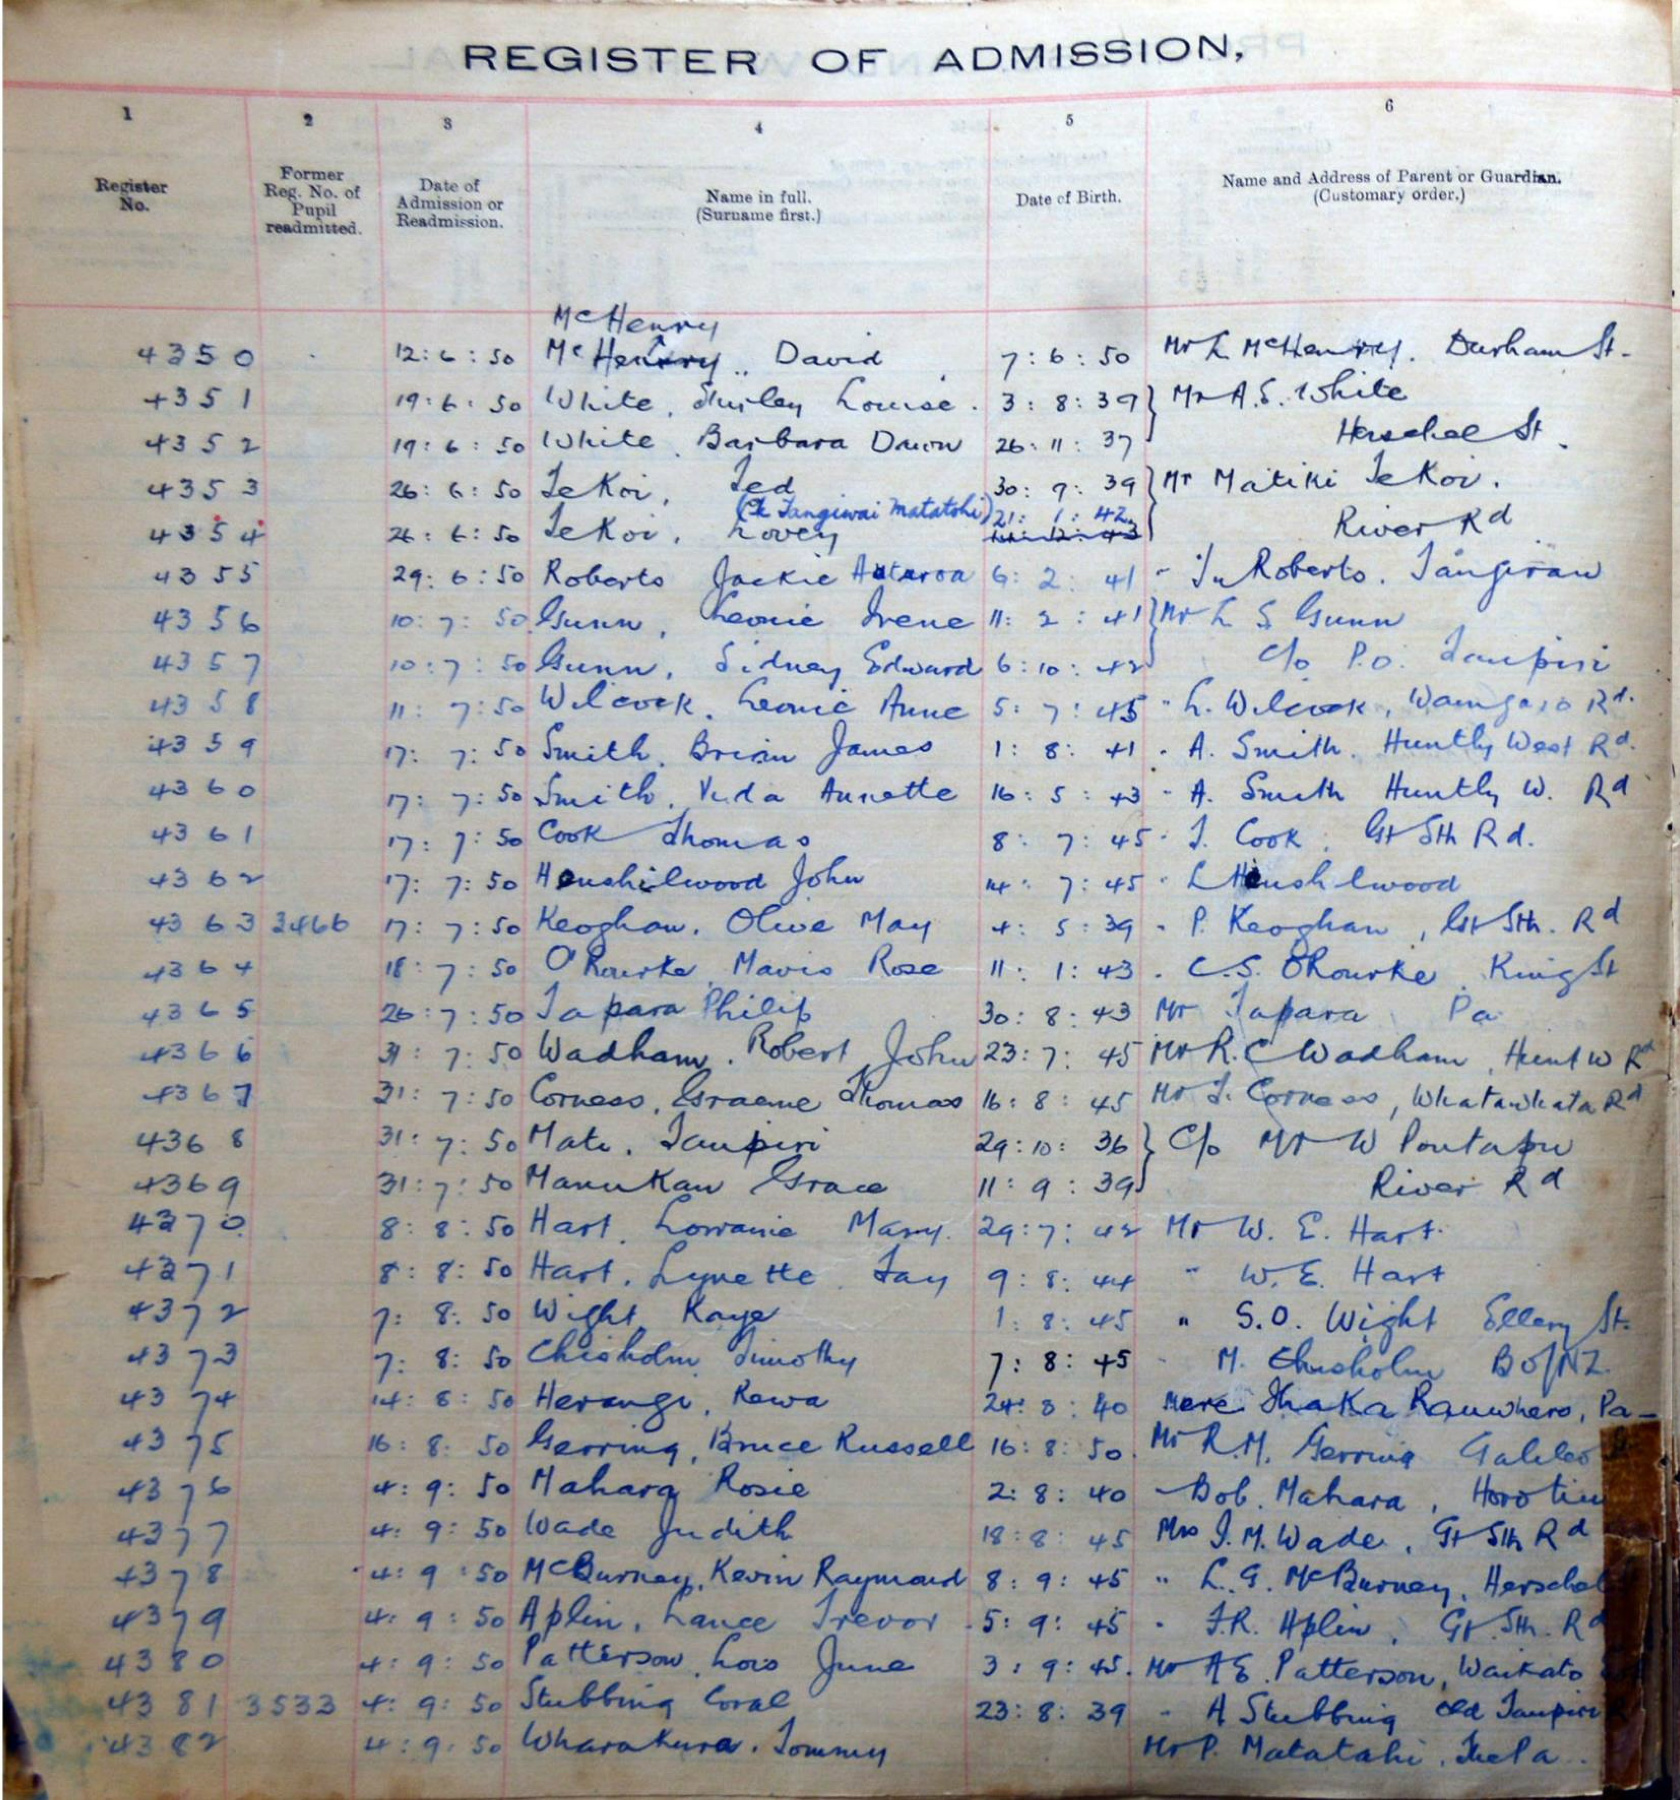 REGISTER OF ADMISSION,
1 2 3 4 5 6
Register No. Former Reg. No. of Pupil readmitted. Date of Admission or Readmission. Name in full. (Surname first.) Date of Birth. Name and Address of Parent or Guardian. (Customary order.)
McHenry
4350 12:6:50 McHenry, David 7:6:50 Mr L McHenry. Durham St.
4351 19:6:50 White, Shirley Louise. 3:8:39 } Mr A.S. White
4352 19:6:50 White, Barbara Dawn 26:11:37 Herschel St.
4353 26:6:50 TeKoi, Ted 30:9:39 } Mr Matiki TeKoi.
(Tangiwai Matatahi) 21:1:42
4354 26:6:50 TeKoi, Lovey River Rd
4355 29:6:50 Roberts Jackie Aotaroa 6:2:41 " Roberts.
4356 10:7:50 Gunn, Leonie Irene 11:2:41 } Mr L S Gunn
4357 10:7:50 Gunn, Sidney Edward 6:10:42 C/o P.O. Taupiri
4358 11:7:50 Wilcock, Leonie Anne 5:7:45 " L. Wilcock, Waingaro Rd.
4359 17:7:50 Smith, Brian James 1:8:41 " A. Smith. Huntly West Rd.
4360 17:7:50 Smith, Veda Annette 16:5:43 " A. Smith Huntly W. Rd
4361 17:7:50 Cook Thomas 8:7:45 " T. Cook. Gt Sth Rd.
4362 17:7:50 Henshilwood John 14:7:45 " L Henshilwood
4363 3466 17:7:50 Keoghan, Olive May 4:5:39 " P. Keoghan, Gt Sth. Rd
4364 18:7:50 O'Rourke, Mavis Rose 11:1:43 " C.S. ORourke King St
4365 26:7:50 Tapara Philip 30:8:43 Mr Tapara Pa
4366 31:7:50 Wadham. Robert John 23:7:45 Mr R.C Wadham, Hunt W Rd
4367 31:7:50 Corness, Graeme Thomas 16:8:45 Mr T. Corness, Whatawhata Rd
4368 31:7:50 Mate, Taupiri 29:10:36 } C/o Mr W Poutapu
4369 31:7:50 Manukau Grace 11:9:39 River Rd
4370 8:8:50 Hart, Lorraine Mary. 29:7:42 Mr W. E. Hart.
4371 8:8:50 Hart, Lynette Fay 9:8:44 " W. E. Hart
4372 7:8:50 Wight Kaye 1:8:45 " S.O. Wight Ellery St.
4373 7:8:50 Chisholm Timothy 7:8:45 " M. Chisholm B of NZ.
4374 14:8:50 Herangi, Rewa 24:8:40 Mere Ihaka Rauwhero, Pa
4375 16:8:50 Gerring, Bruce Russell 16:8:50. Mr R.M. Gerring Galileo
4376 4:9:50 Mahara Rosie 2:8:40 " Bob. Mahara, Horotiu
4377 4:9:50 Wade Judith 18:8:45 Mrs J.M. Wade, Gt Sth Rd
4378 4:9:50 McBurney, Kevin Raymond 8:9:45 " L.G. McBurney, Herschel
4379 4:9:50 Aplin, Lance Trevor 5:9:45 " F.R. Aplin, Gt. Sth. Rd
4380 4:9:50 Patterson, Lois June 3:9:45. Mr A E. Patterson, Waikato
4381 3533 4:9:50 Stubbing Coral 23:8:39 " A Stubbing Old Taupiri
4382 4:9:50 Wharakura, Tommy Mr P. Matatahi, The Pa.